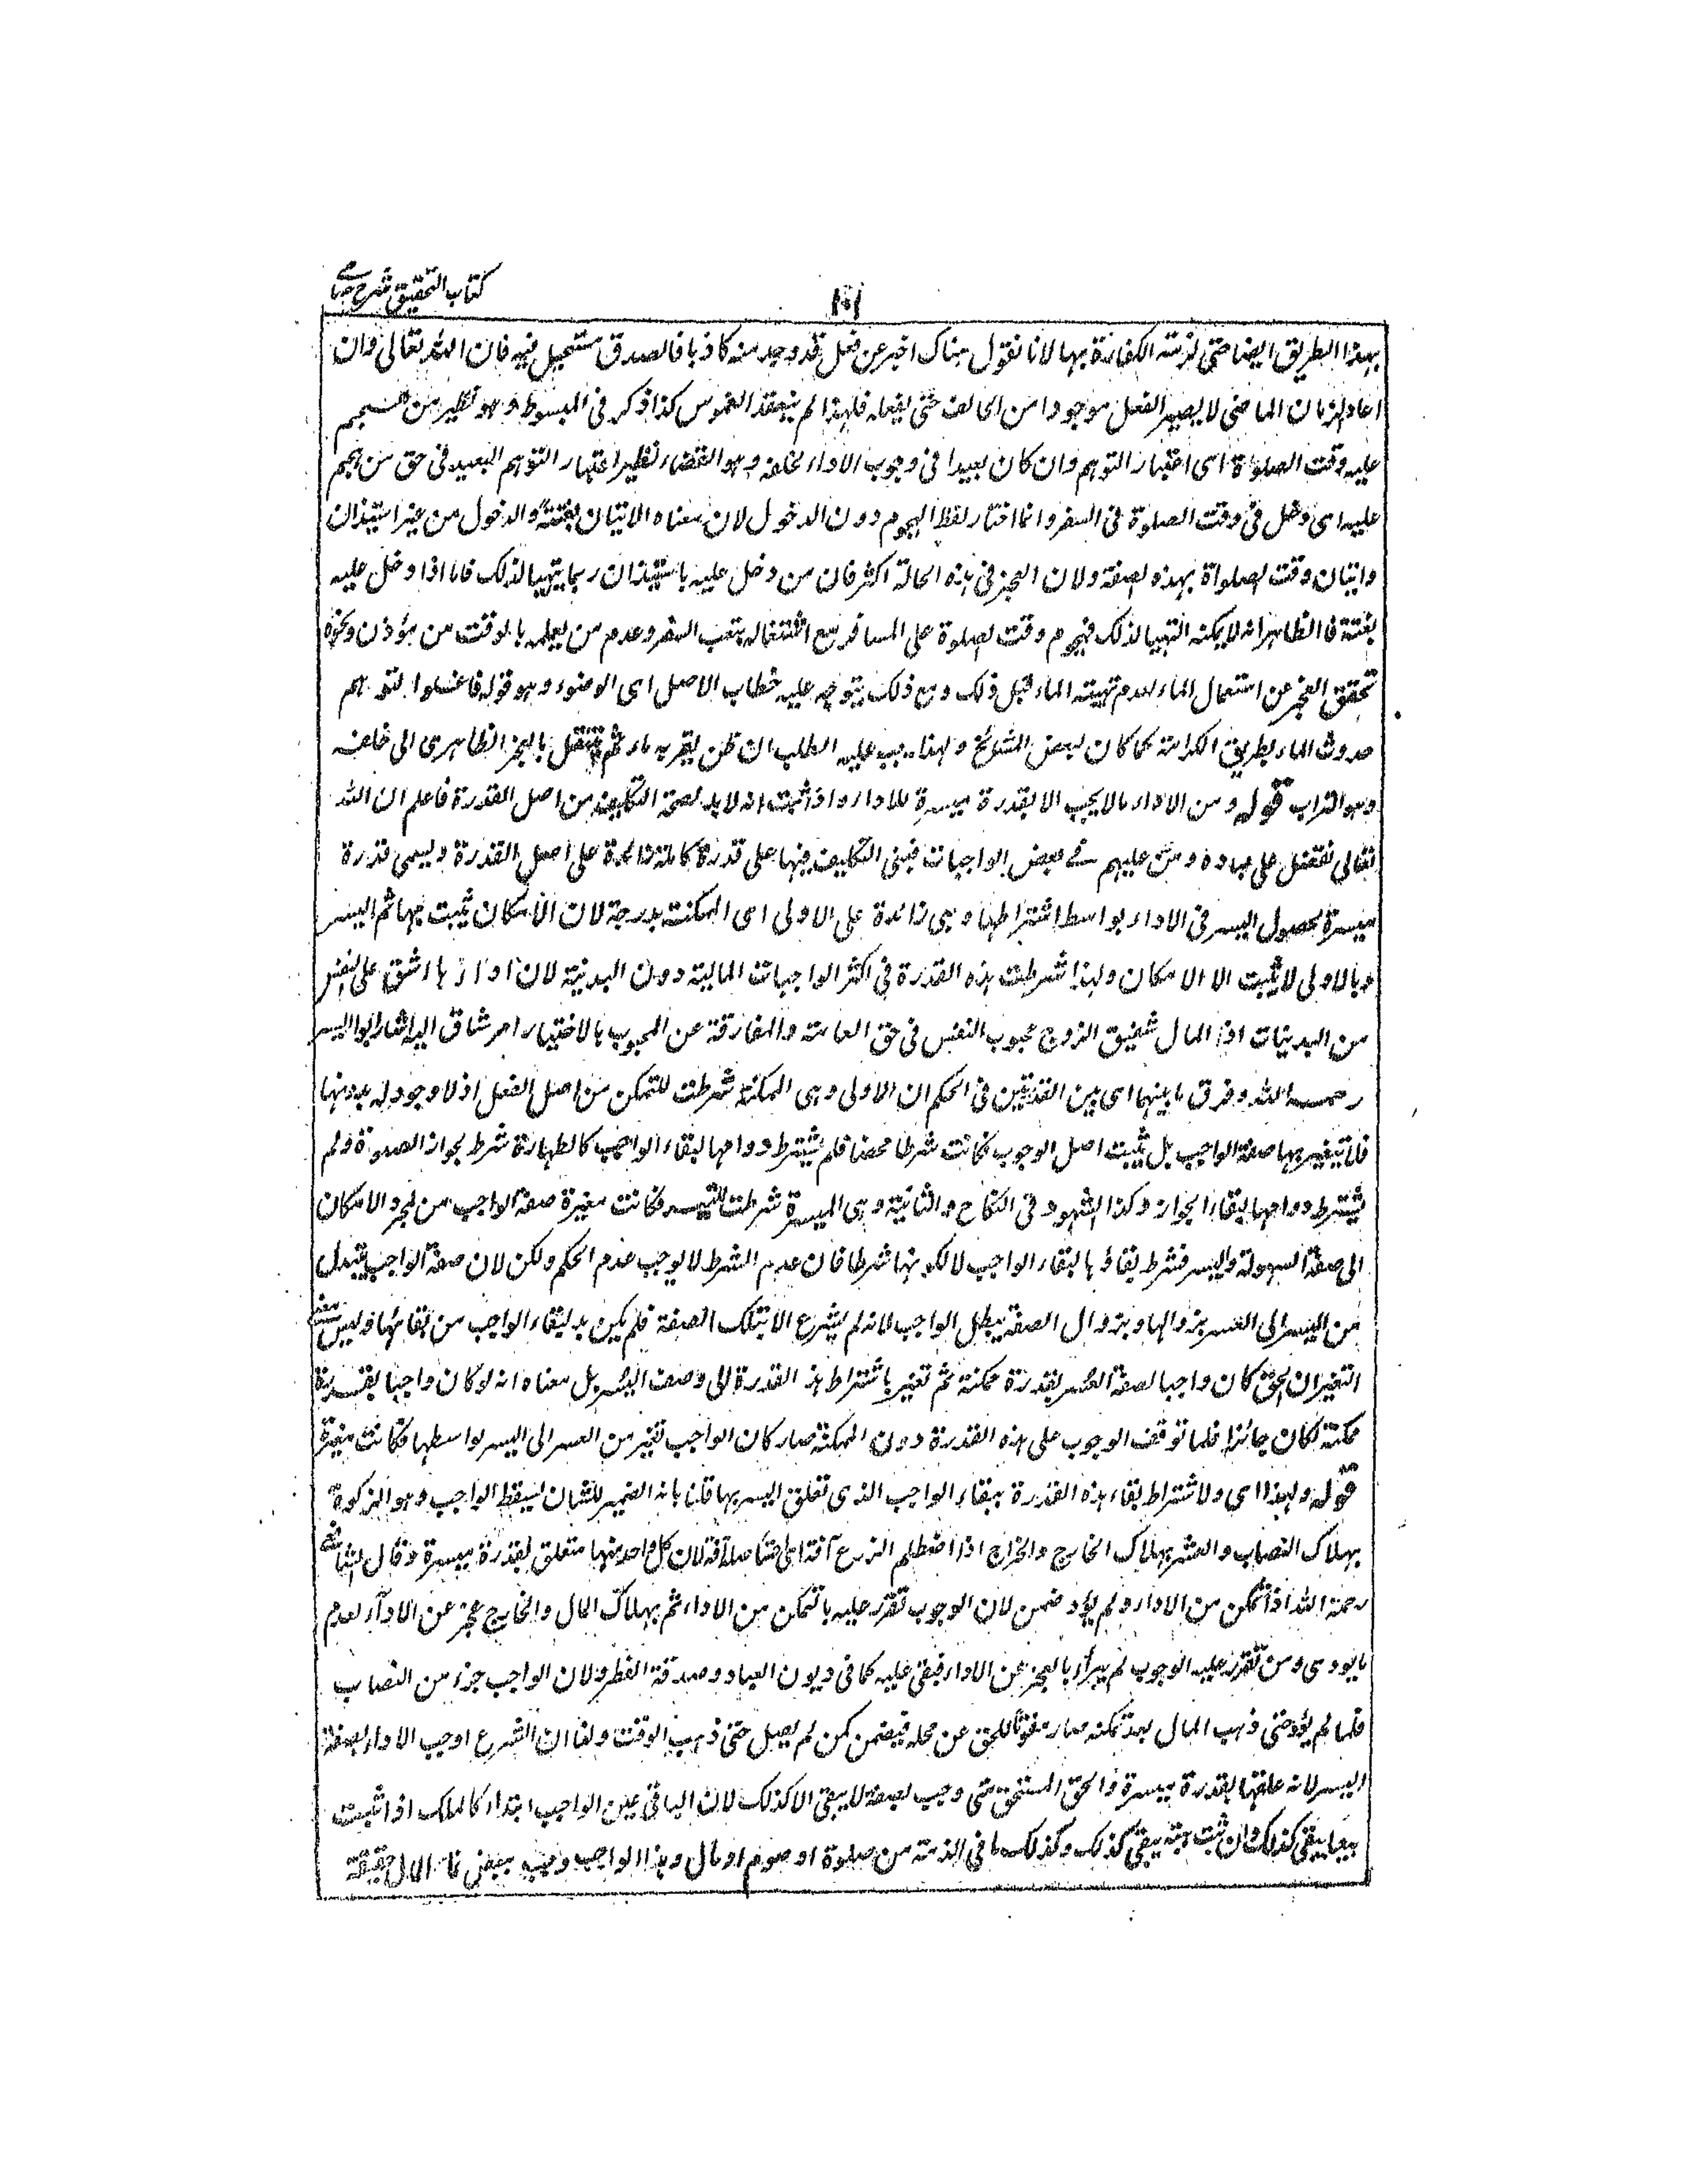 كتاب التحقيق شرح حسامي
١٠١
بهذا الطريق ايضا حتى لزمته الكفارة بها لانا نقول هناك اخبر عن فعل قد وجد منه كاذبا فالصدق مستحيل فيه فان الله تعالى وان
اعاد الزمان الماضى لا يصير الفعل موجودا من الحالف حتى يفعله فلهذا لم ينعقد الغموس كذا ذكر فى المبسوط وهو نظير من هجم
عليه وقت الصلوة اى اعتبار التوهم وان كان بعيدا فى وجوب الاداء لخلفه وهو القضاء نظير اعتبار التوهم البعيد فى حق من هجم
عليه اى دخل فى وقت الصلوة فى السفر وانما اختار لفظ الهجوم دون الدخول لان معناه الاتيان بغتة والدخول من غير استيذان
واتيان وقت الصلواة بهذه الصفة ولان العجز فى هذه الحالة اكثر فان من دخل عليه باستيذان ربما يتهيا لذلك فاما اذا دخل عليه
بغتة فالظاهر انه لا يمكنه التهيا لذلك فهجوم وقت الصلوة على المسافر مع اشتغاله بتعب السفر وعدم من يعلمه بالوقت من مؤذن ونحوه
تحقق العجز عن استعمال الماء لعدم تهيئته الماء قبل ذلك ومع ذلك يتوجه عليه خطاب الاصل اى الوضوء وهو قوله فاغسلوا لتوهم
حدوث الماء بطريق الكرامة كما كان لبعض المشائخ ولهذا يجب عليه الطلب ان ظن بقربه ماء ثم ينتقل بالعجز الظاهرى الى خلفه
وهو التراب قوله ومن الاداء ما لا يجب الا بقدرة ميسرة للاداء واذا ثبت انه لا بد لصحة التكليف من اصل القدرة فاعلم ان الله
تعالى تفضل على عباده ومن عليهم فے بعض الواجبات فبنى التكليف فيها على قدرة كاملة زائدة على اصل القدرة ويسمى قدرة
ميسرة لحصول اليسر فى الاداء بواسطة اشتراطها وهى زائدة على الاولى اى الممكنة بدرجة لان الامكان ثبت بها ثم اليسر
وبالاولى لا يثبت الا الامكان ولهذا شرطت هذه القدرة فى اكثر الواجبات المالية دون البدنية لان اداءها اشق على النفس
من البدنيات اذ المال شقيق الروح محبوب النفس فى حق العامة والمفارقة عن المحبوب بالاختيار امر شاق اليه اشار ابو اليسر
رحمه الله وفرق ما بينهما اى بين القدرتين فى الحكم ان الاولى وهى الممكنة شرطت للتمكن من اصل الفعل اذ لا وجود له بدونها
فلا يتغير بها صفة الواجب بل يثبت اصل الوجوب فكانت شرطا محضا فلم يشترط دوامها لبقاء الواجب كالطهارة شرط لجواز الصلوة ولم
يشترط دوامها لبقاء الجواز وكذا الشهود فى النكاح والثانية وهى الميسرة شرطت لليسر فكانت مغيرة صفة الواجب من مجرد الامكان
الى صفة السهولة واليسر فشرط بقاؤها لبقاء الواجب لا لكونها شرطا فان عدم الشرط لا يوجب عدم الحكم ولكن لان صفة الواجب يتبدل
من اليسر الى العسر بزوالها وبزوال الصفة يبطل الواجب لانه لم يشرع الا بتلك الصفة فلم يكن بد لبقاء الواجب من بقائها وليس معنى
التغير ان الحق كان واجبا لصفة العسر بقدرة ممكنة ثم تغير باشتراط هذه القدرة الى وصف اليسر بل معناه انه لو كان واجبا بقدرة
ممكنة لكان جائزا فلما توقف الوجوب على هذه القدرة دون الممكنة صار كان الواجب تغير من العسر الى اليسر بواسطتها فكانت مغيرة
قوله ولهذا اى ولاشتراط بقاء هذه القدرة ببقاء الواجب الذى تعلق اليسر بها قلنا بانه الضمير للشان يسقط الواجب وهو الزكوة
بهلاك النصاب والعشر بهلاك الخارج والخراج اذا اصطلم الزرع آفة اى استاصله آفة لان كل واحد منها متعلق بقدرة ميسرة وقال الشافعى
رحمه الله اذا تمكن من الاداء ولم يؤد ضمن لان الوجوب تقرر عليه بالتمكن من الاداء ثم بهلاك المال والخارج عجز عن الاداء لعدم
ما يودى ومن تقرر عليه الوجوب لم يبرأ بالعجز عن الاداء فبقى عليه كما فى ديون العباد وصدقة الفطر ولان الواجب جزء من النصاب
فلما لم يؤد حتى ذهب المال بعد تمكنه صار مفوتا للحق عن محله فيضمن كمن لم يصل حتى ذهب الوقت ولنا ان الشرع اوجب الاداء بصفة
اليسر لانه علقها بقدرة ميسرة والحق المستحق متى وجب بصفة لا يبقى الا كذلك لان الباقى عين الواجب ابتداء كالملك اذا ثبت
مبيعا يبقى كذلك وان ثبت هبة يبقى كذلك وكذلك ما فى الذمة من صلوة او صوم او مال وهذا الواجب وجب ببعض نماء المال حقيقة